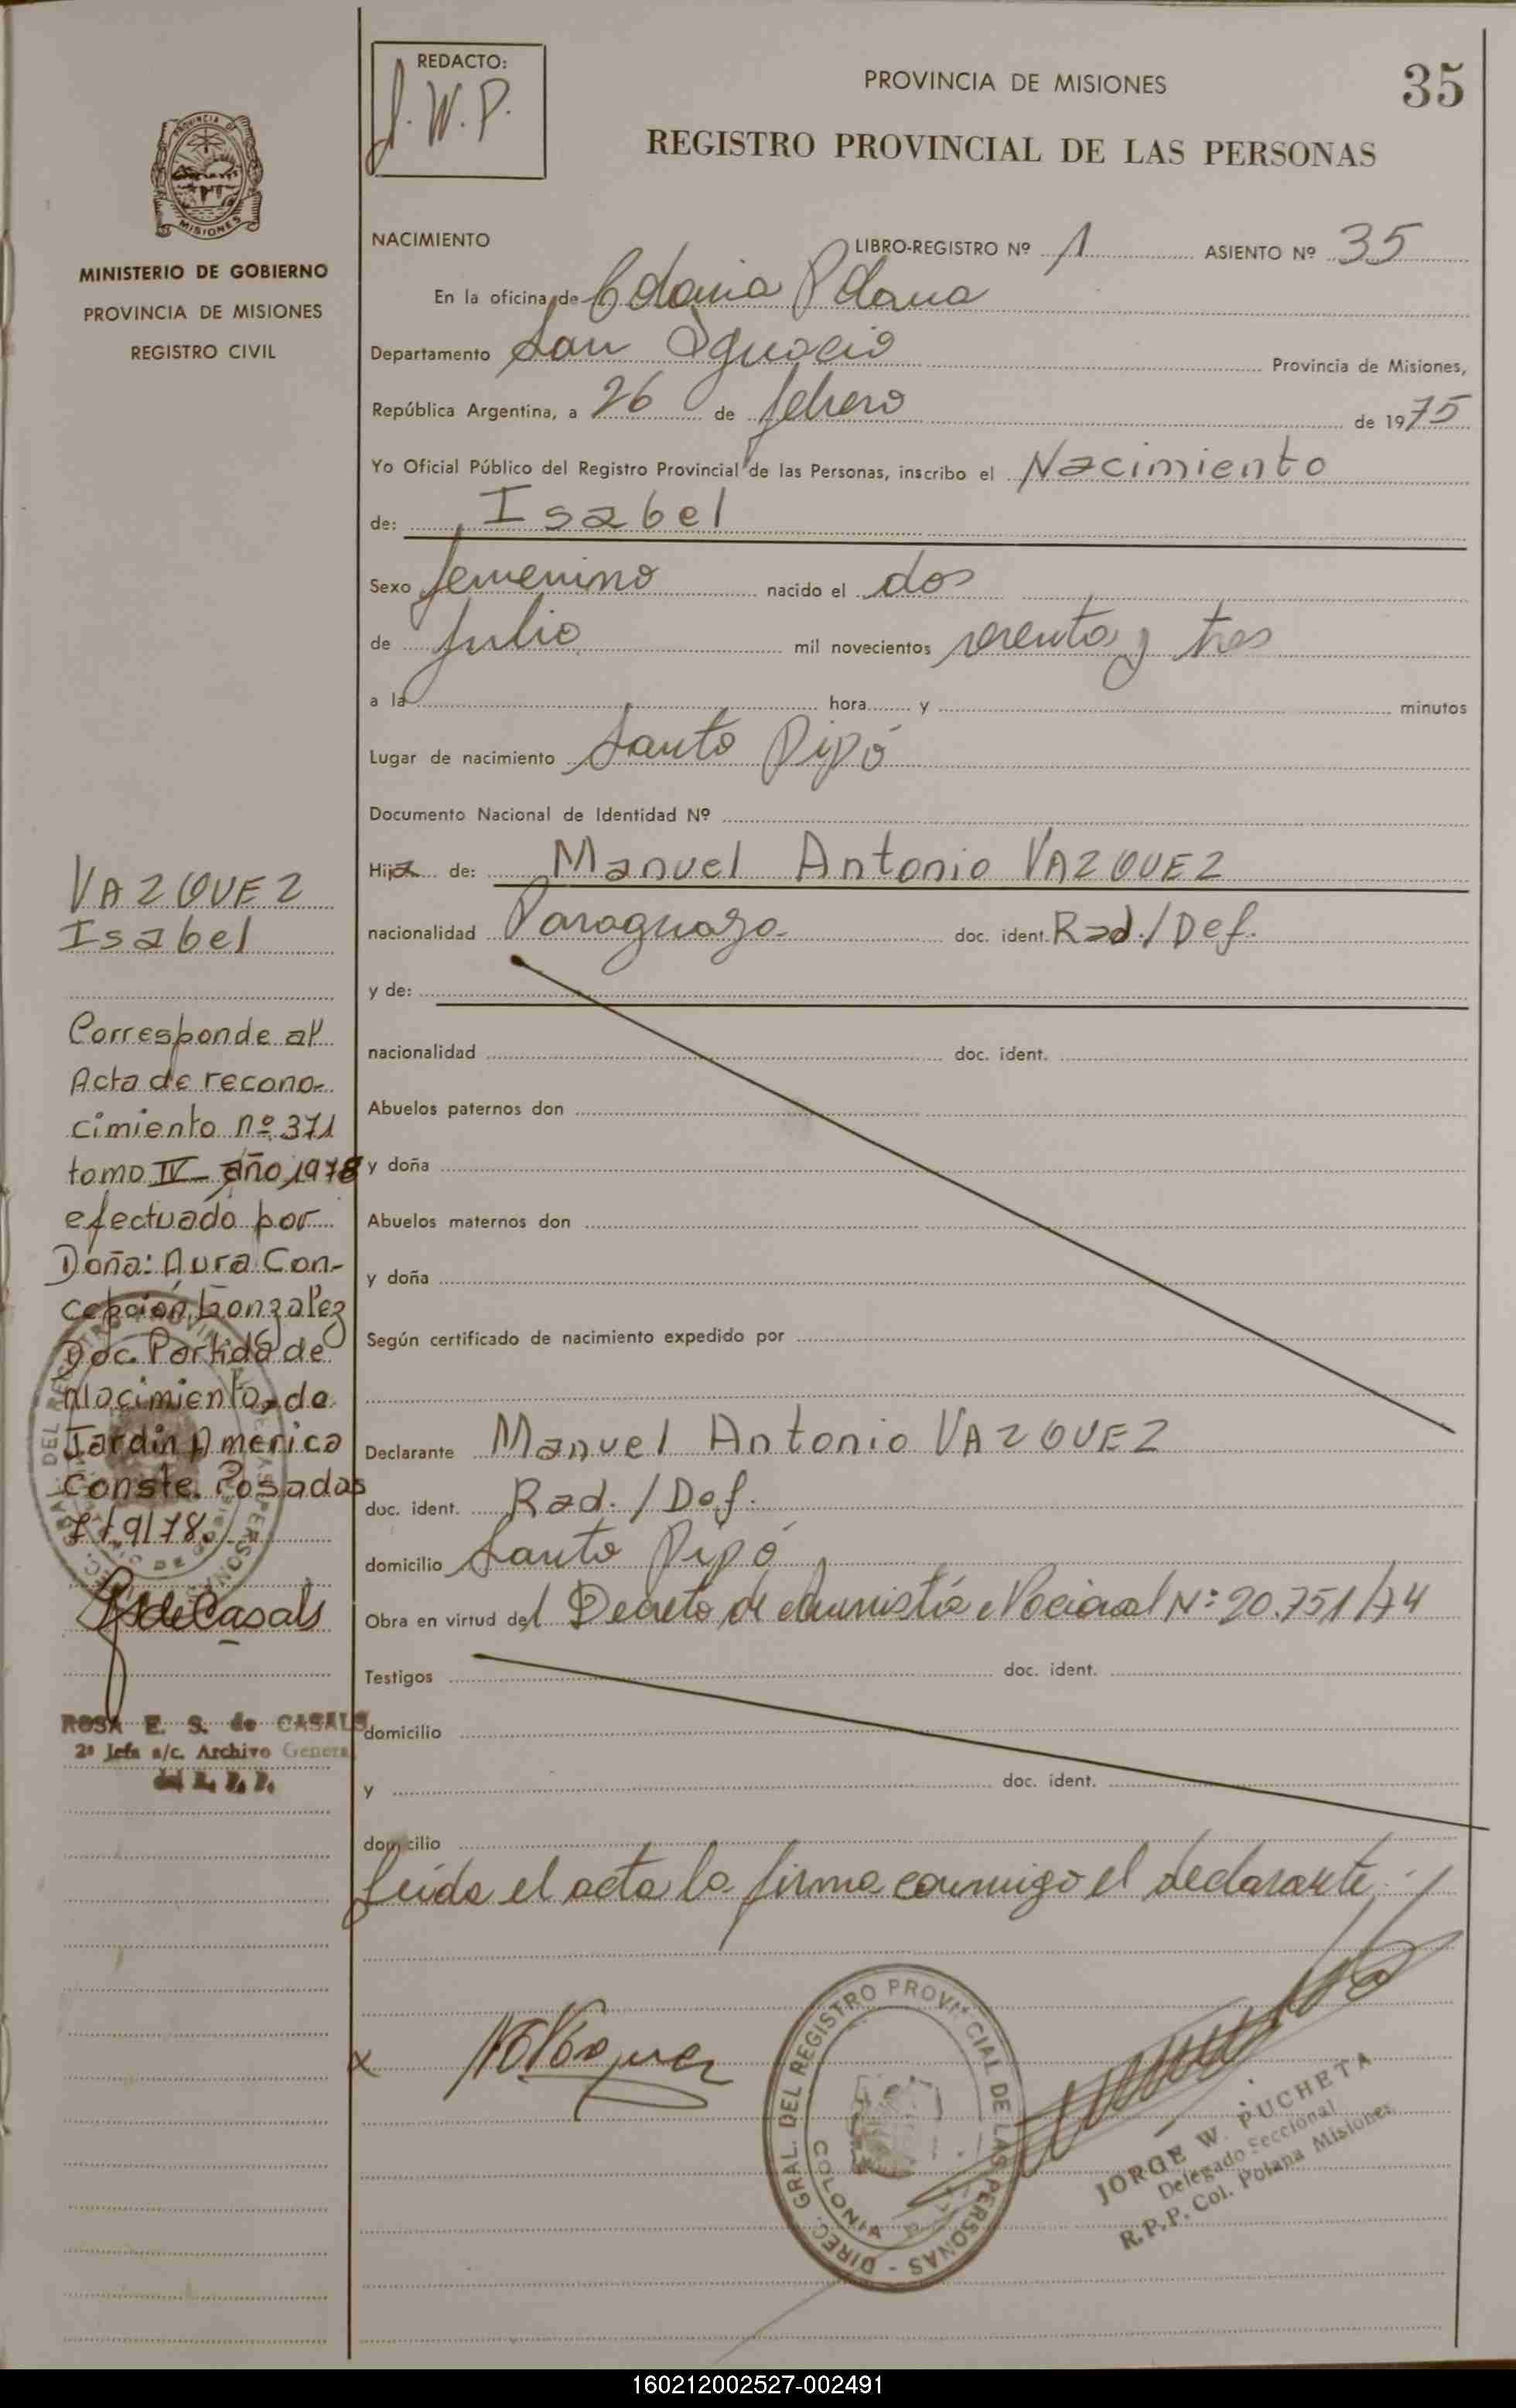 REDACTO:
J. W. P.
PROVINCIA DE MISIONES
35
REGISTRO PROVINCIAL DE LAS PERSONAS
PROVINCIA DE
MISIONES
MINISTERIO DE GOBIERNO
PROVINCIA DE MISIONES
REGISTRO CIVIL
NACIMIENTO
LIBRO-REGISTRO Nº 1 ASIENTO Nº 35
En la oficina de Colonia Polana
Departamento San Ignacio Provincia de Misiones,
República Argentina, a 26 de febrero de 1975
Yo Oficial Público del Registro Provincial de las Personas, inscribo el Nacimiento
de: Isabel
Sexo femenino nacido el dos
de Julio mil novecientos sesenta y tres
a la hora y minutos
Lugar de nacimiento Santo Pipó
Documento Nacional de Identidad Nº
Hija de: Manuel Antonio VAZQUEZ
nacionalidad Paraguaya doc. ident. Rad./Def.
y de:
nacionalidad doc. ident.
Abuelos paternos don
y doña
Abuelos maternos don
y doña
Según certificado de nacimiento expedido por
Declarante Manuel Antonio VAZQUEZ
doc. ident. Rad./Def.
domicilio Santo Pipó
Obra en virtud del Decreto de Amnistía Nacional Nº 20.751/74
Testigos doc. ident.
domicilio
y doc. ident.
domicilio
Leída el acta la firma conmigo el declarante.
VAZQUEZ
Isabel
Corresponde al
Acta de recono-
cimiento nº 371
tomo IV - año 1978
efectuado por
Doña: Aura Con-
cepción Gonzalez
Doc. Partida de
Nacimiento, de
Jardin America
Conste. Posadas
7/9/78.
RSdeCasals
ROSA E. S. de CASALS
2ª Jefa a/c. Archivo General
del R. P. P.
x
DIREC. GRAL. DEL REGISTRO PROVINCIAL DE LAS PERSONAS -
COLONIA
JORGE W. PUCHETA
Delegado Seccional
R.P.P. Col. Polana Misiones
160212002527-002491